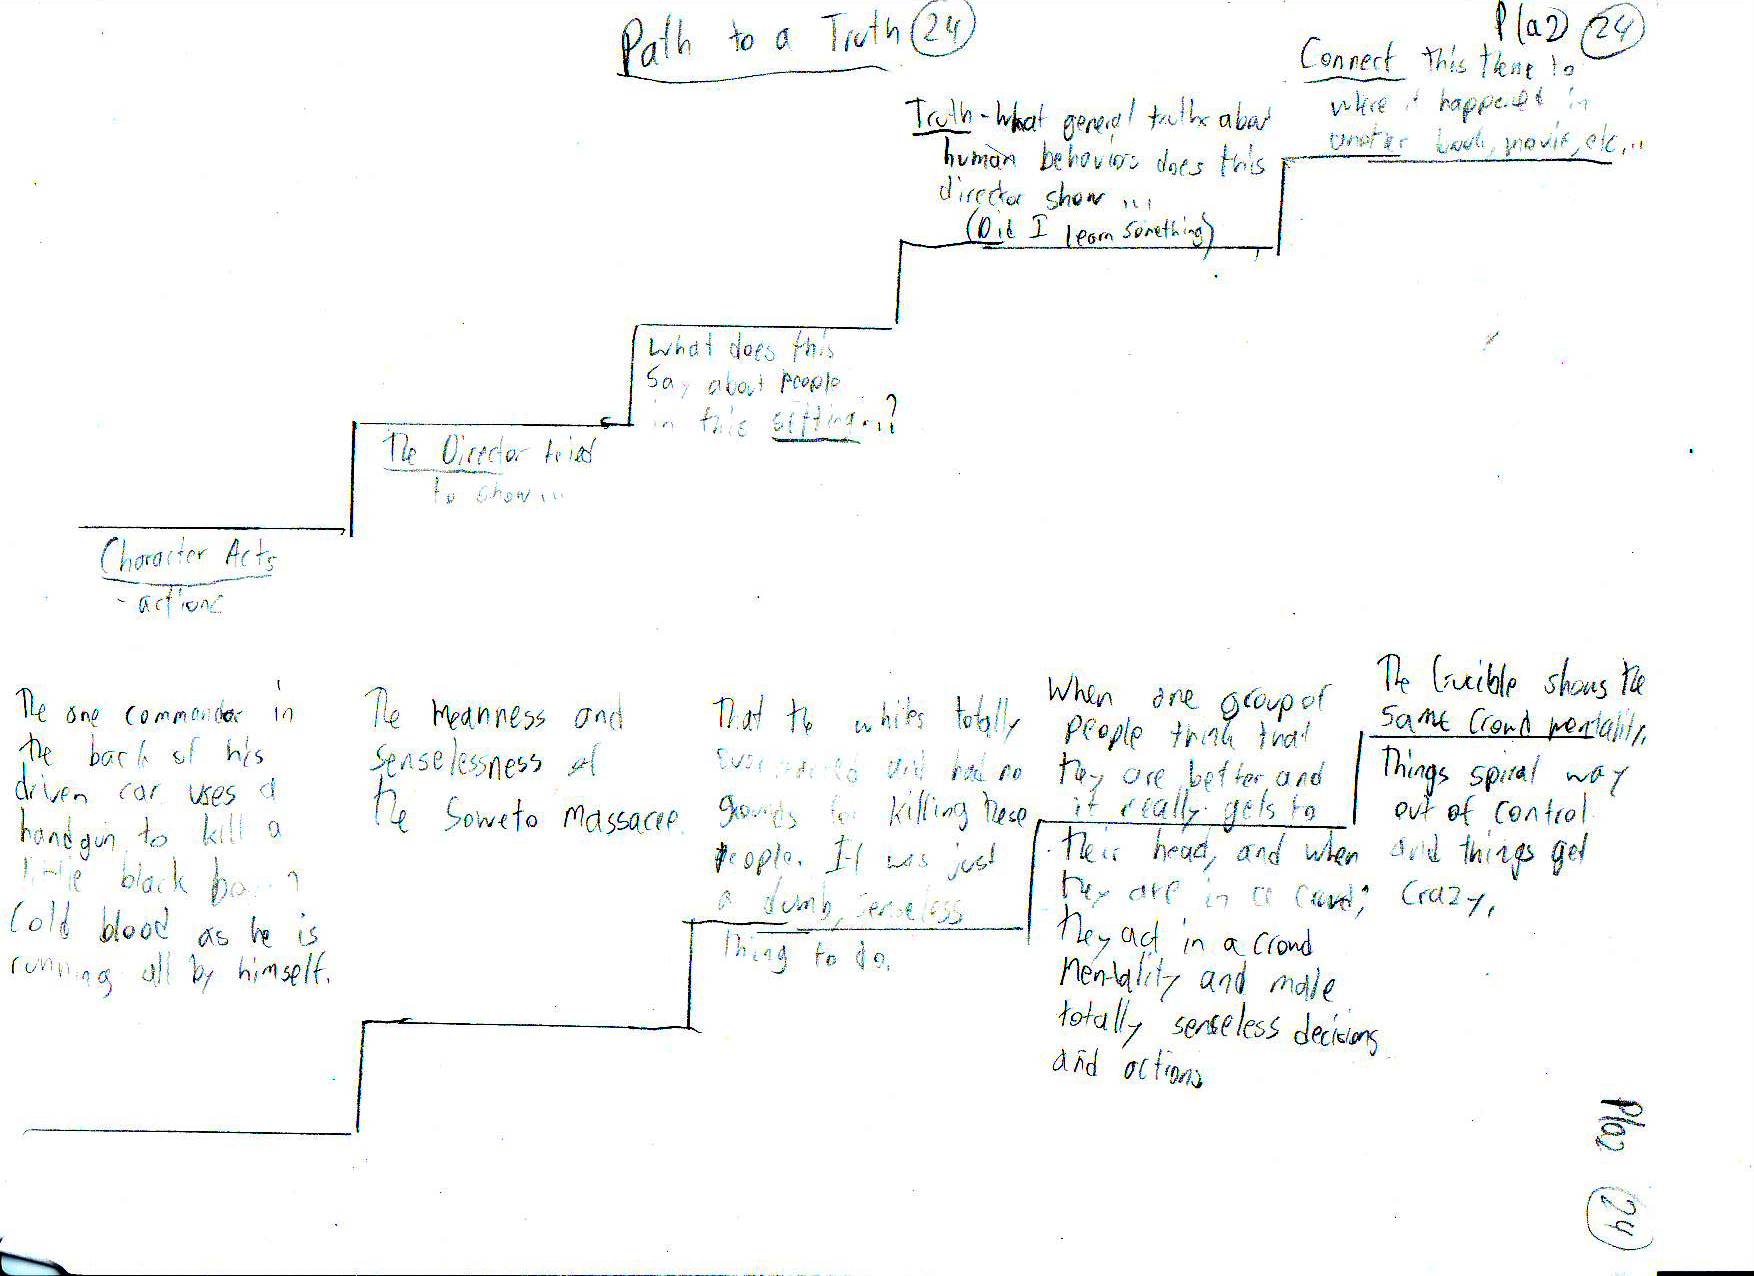 Path to a Truth 24
Pla2 24
Connect this theme to
where it happened in
another book, movie, etc...
Truth - What general truths about
human behaviors does this
director show ...
(Did I learn something)
What does this
Say about people
in this setting...?
The Director tried
to show...
Character Acts
- actions
The one commander in
the back of his
driven car uses a
handgun to kill a
little black
Cold blood as he is
running all by himself.
The Meanness and
senselessness of
the Soweto Massacre.
That the whites totally
and had no
grounds for killing these
people. It was just
a dumb, senseless
thing to do.
When one group of
people think that
they are better and
it really gets to
their head, and when
they are in a crowd,
they act in a crowd
Mentality and make
totally senseless decisions
and actions
The Crucible shows the
same crowd mentality.
Things spiral way
out of control
and things get
crazy.
Pla2 24